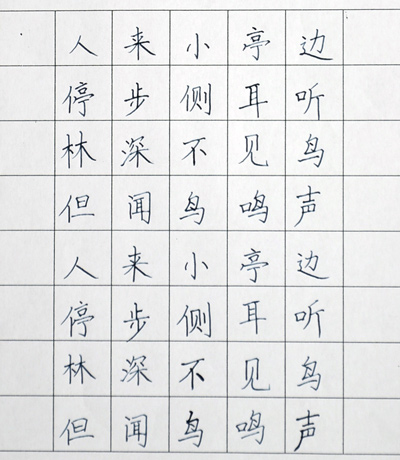 人来小亭边
停步侧耳听
林深不见鸟
但闻鸟鸣声
人来小亭边
停步侧耳听
林深不见鸟
但闻鸟鸣声